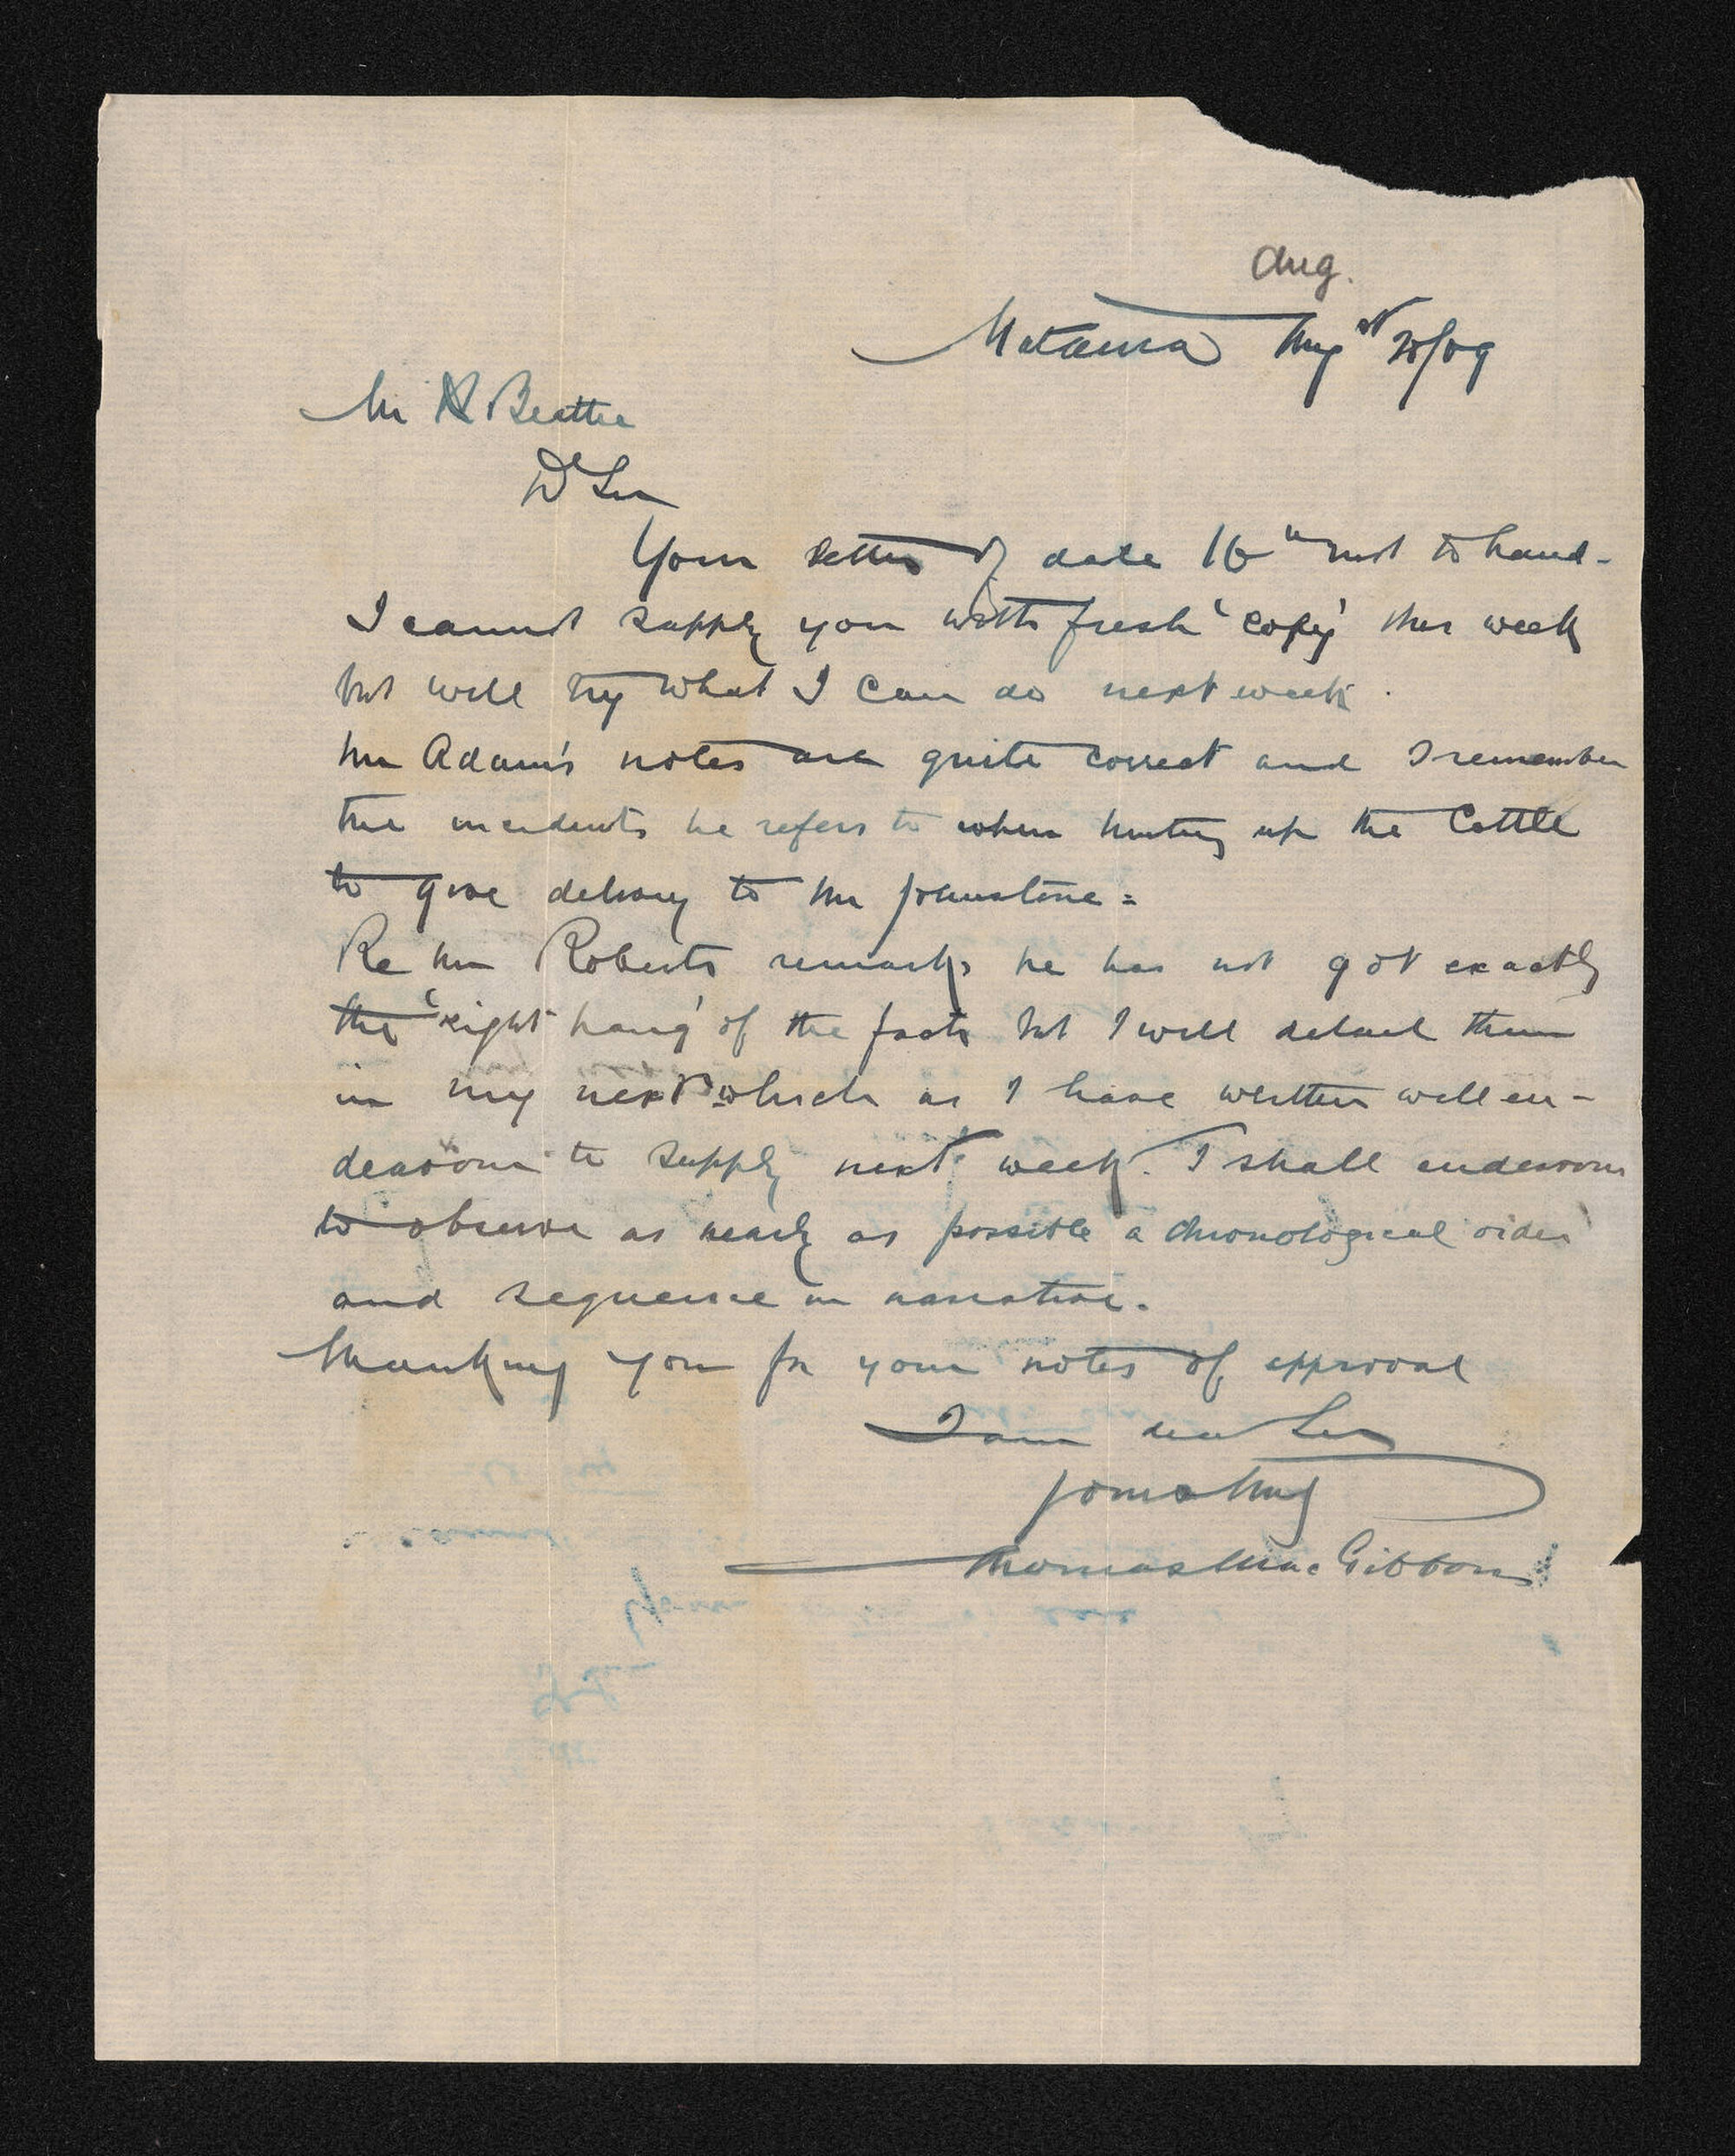 Aug.
Mataura Augst 20/09
Mr Beattie
Dr Sir
Your letter of date 16th inst to hand -
I cannot supply you with fresh 'copy' this week
but will try what I can do next week.
Mr Adam's notes are quite correct and I remember
the incidents he refers to when hunting up the Cattle
to give delivery to Mr Johnstone =
Re Mr Roberts remarks he has not got exactly
the 'right hang' of the facts but I will detail them
in my next which as I have written will en-
deavour to supply next week. I shall endeavour
to observe as nearly as possible a chronological order
and sequence in narrative.
Thanking you for your notes of approval
I am dear Sir
Yours truly
Thomas MacGibbon